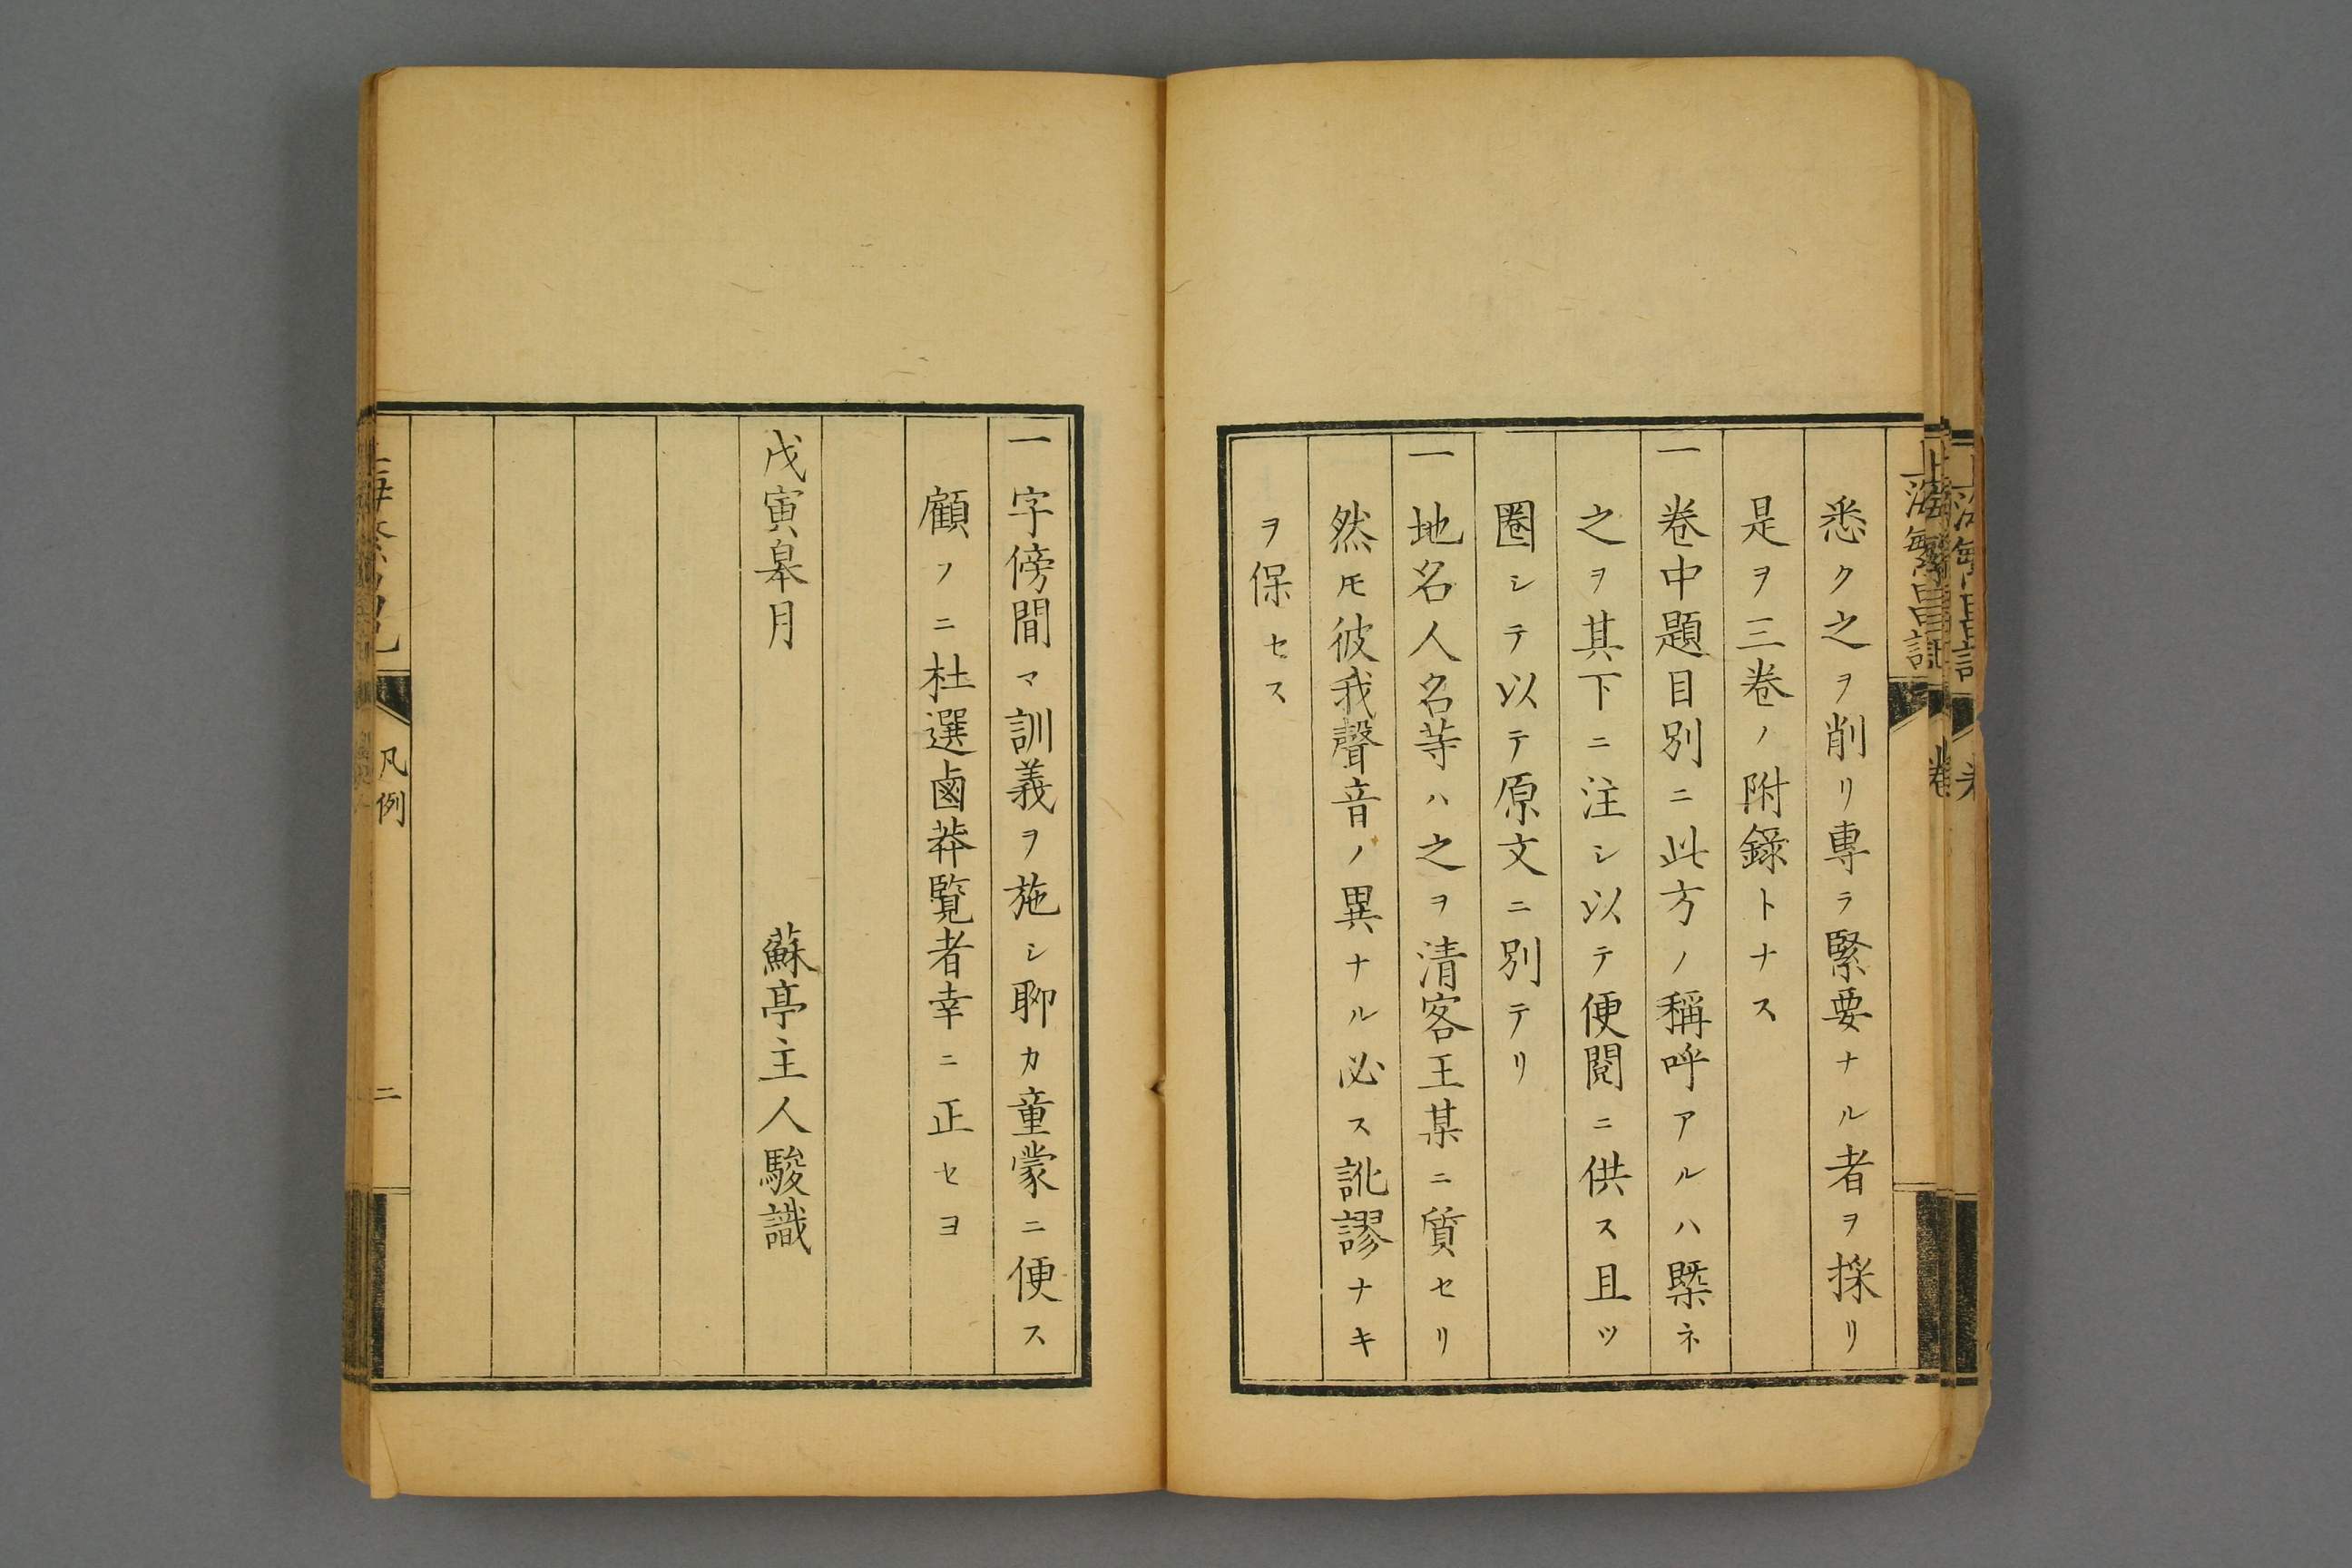 上海繁昌記
悉ク之ヲ削リ專ラ緊要ナル者ヲ採リ
是ヲ三卷ノ附錄トナス
一卷中題目別ニ此方ノ稱呼アルハ槩ネ
之ヲ其下ニ注シ以テ便閱ニ供ス且ツ
圈シテ以テ原文ニ別テリ
一地名人名等ハ之ヲ清客王某ニ質セリ
然𪜈彼我聲音ノ異ナル必ス訛謬ナキ
ヲ保セス
一字傍間マ訓義ヲ施シ聊カ童蒙ニ便ス
顧フニ杜選鹵莽覧者幸ニ正セヨ
戊寅皐月 蘇亭主人駿識
凡例
二